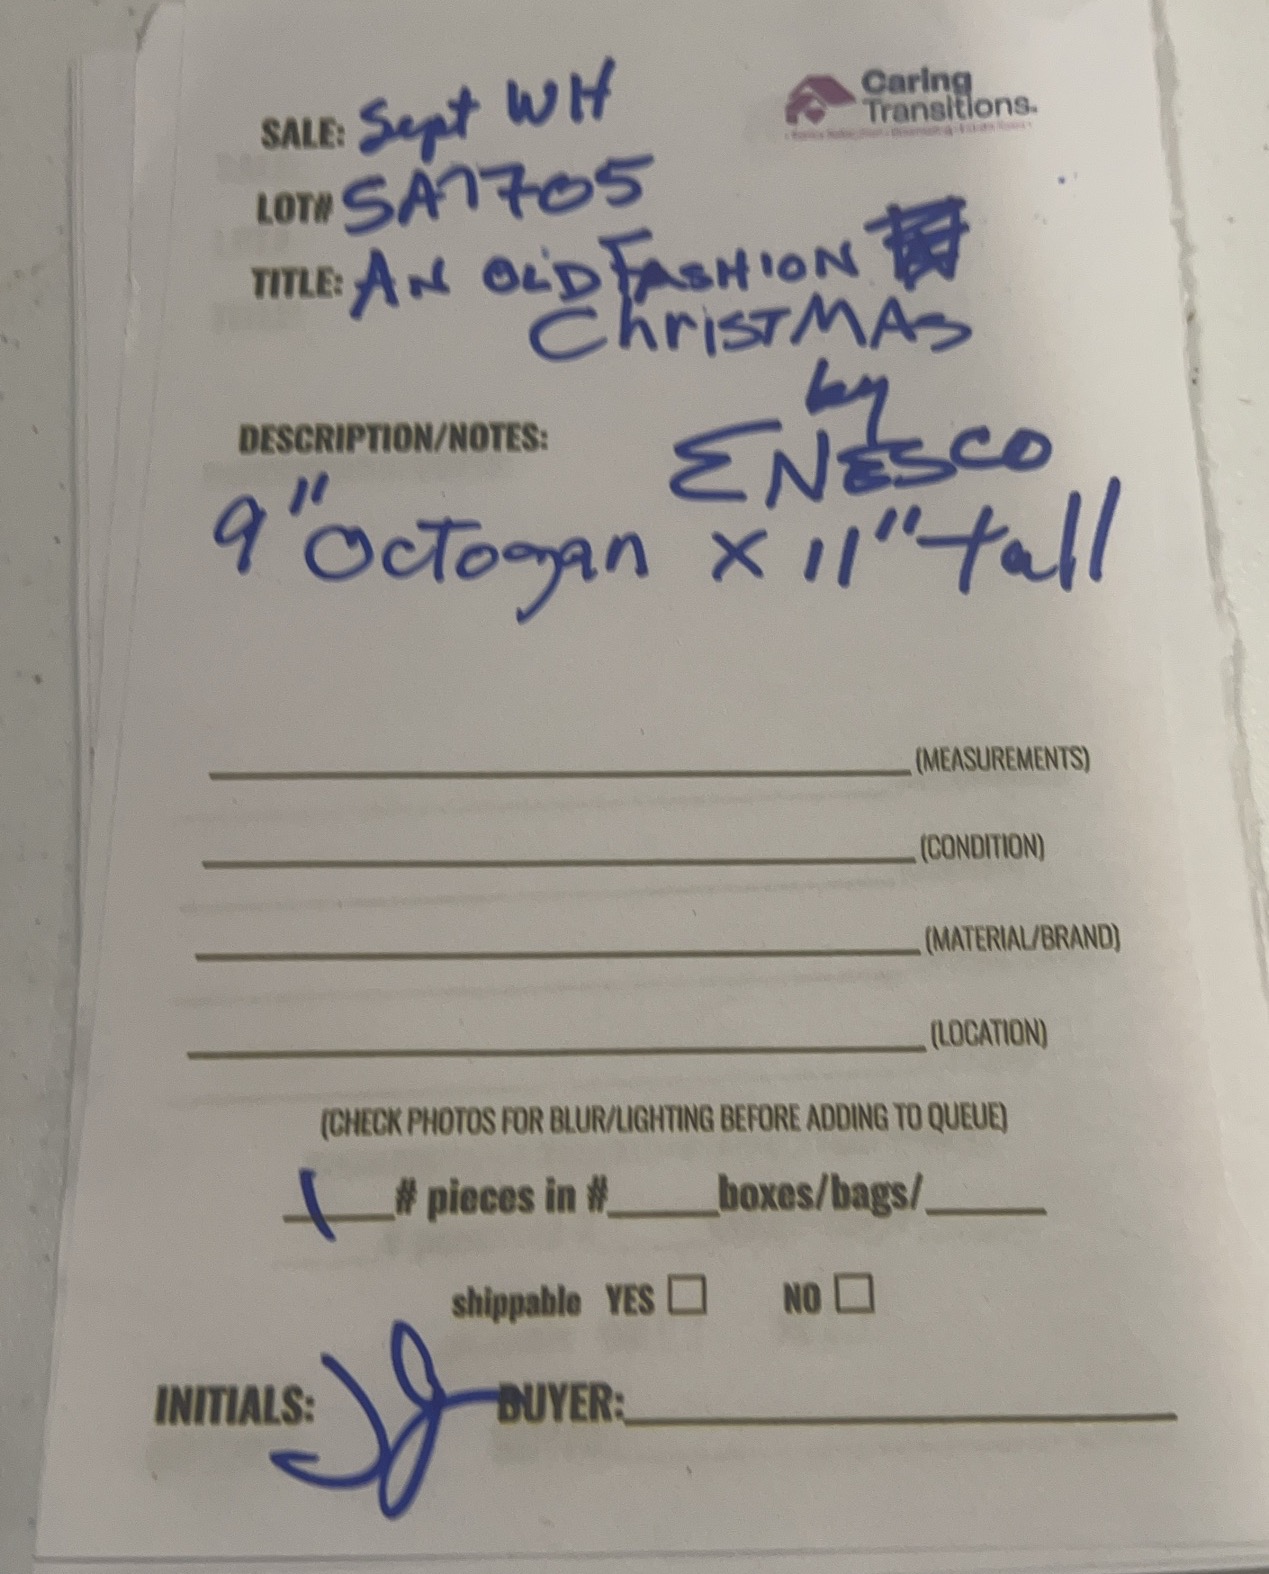 Caring
Transitions.
SALE: Sept WH
LOT# SA7705
TITLE: AN OLD FASHION
ChrisTMAS
by
DESCRIPTION/NOTES: ENESCO
9" Octogan x 11" tall
(MEASUREMENTS)
(CONDITION)
(MATERIAL/BRAND)
(LOCATION)
(CHECK PHOTOS FOR BLUR/LIGHTING BEFORE ADDING TO QUEUE)
1 # pieces in # boxes/bags/
shippable YES NO
INITIALS: JJ BUYER: